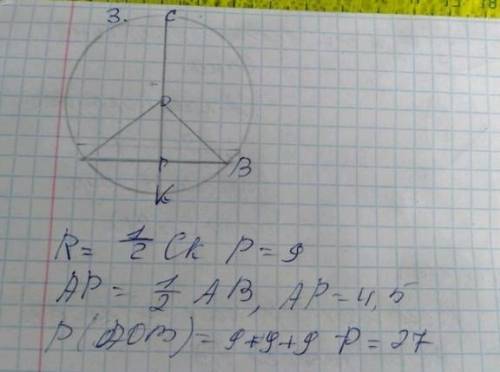 3. C
O
P B
K
R = 1/2 CK P = 9
AP = 1/2 AB, AP = 4,5
P (AOB) = 9+9+9 P = 27